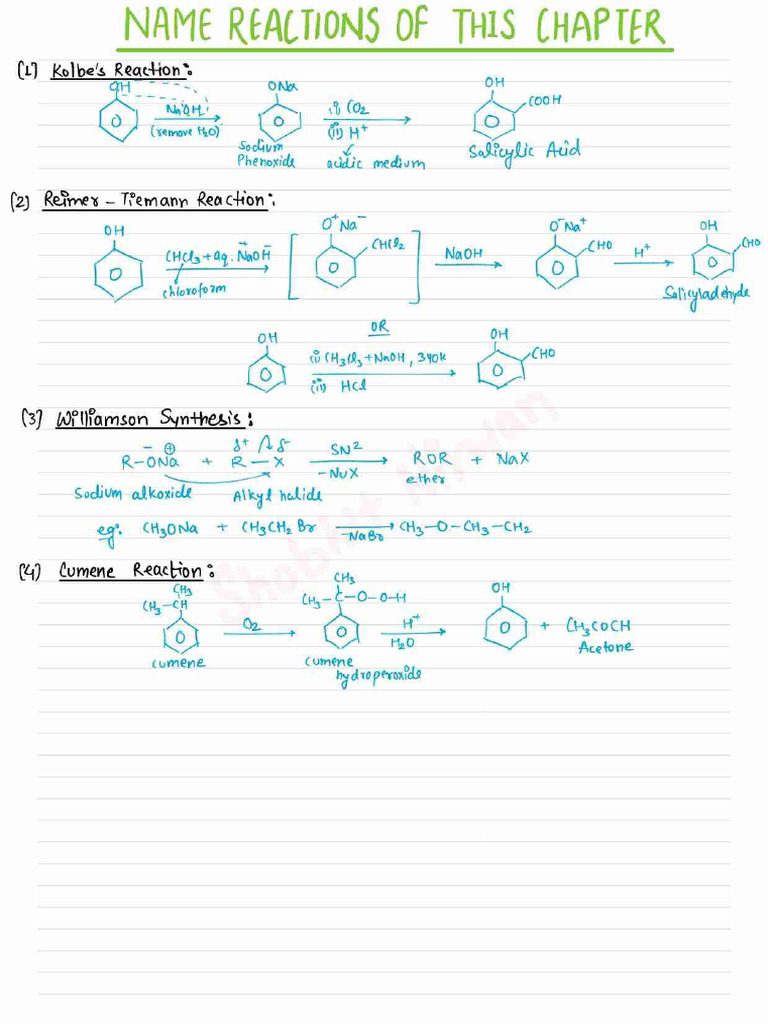 NAME REACTIONS OF THIS CHAPTER
(1) Kolbe's Reaction:
OH NaOH (remove H2O) ONa Sodium Phenoxide (i) CO2 (ii) H+ acidic medium OH COOH Salicylic Acid
(2) Reimer - Tiemann Reaction:
OH CHCl3 + aq. NaOH chloroform O+ Na- CHCl2 NaOH O- Na+ CHO H+ OH CHO Salicyladehyde
OR
OH (i) CH3Cl3 + NaOH, 340K (ii) HCl OH CHO
(3) Williamson Synthesis:
R-ONa + R-X SN2 -NuX ROR + NaX
- ⊕ δ+ δ-
Sodium alkoxide Alkyl halide ether
eg: CH3ONa + CH3CH2Br -NaBr CH3-O-CH3-CH2
(4) Cumene Reaction:
CH3 CH3-CH cumene O2 CH3 CH3-C-O-O-H cumene hydroperoxide H+ H2O OH + CH3COCH Acetone
Shobhit Nirwan